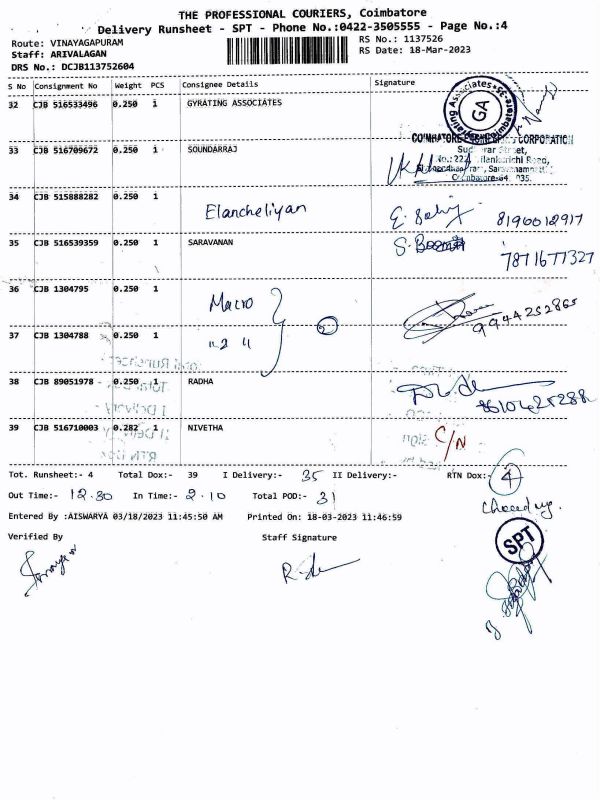 THE PROFESSIONAL COURIERS, Coimbatore
Delivery Runsheet - SPT - Phone No.:0422-3505555 - Page No.:4
Route: VINAYAGAPURAM
RS No.: 1137526
Staff: ARIVALAGAN
RS Date: 18-Mar-2023
DRS No.: DCJB113752604
S No Consignment No Weight PCS Consignee Details Signature
32 CJB 516533496 0.250 1 GYRATING ASSOCIATES
GA
COIMBATORE CORPORATION
33 CJB 516709672 0.250 1 SOUNDARRAJ
34 CJB 515888282 0.250 1 Elancheliyan 8190012917
35 CJB 516539359 0.250 1 SARAVANAN 7871677327
36 CJB 1304795 0.250 1 Macro 2 9944252865
37 CJB 1304788 0.250 1
38 CJB 89051978 0.250 1 RADHA
39 CJB 516710003 0.282 1 NIVETHA C/N
Tot. Runsheet:- 4 Total Dox:- 39 I Delivery:- 35 II Delivery:- RTN Dox:- 4
Out Time:- 12.30 In Time:- 2.10 Total POD:- 31
Entered By :AISWARYA 03/18/2023 11:45:50 AM Printed On: 18-03-2023 11:46:59
Verified By Staff Signature
SPT